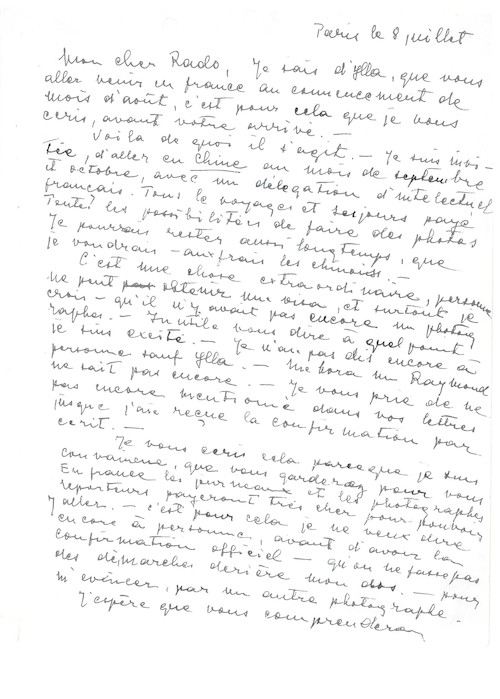 Paris le 8 juillet
Mon cher Rado, Je sais d'ylla, que vous
aller venir en france au commencement de
mois d'août, c'est pour cela que je vous
ecris, avant votre arrivé. —
Voila de quoi il s'agit. — Je suis invi-
tée, d'aller en Chine au mois de septembre
et octobre, avec un délégation d'intelectuel
français. Tous le voyages et sejours payé
Toute les possibilitées de faire des photos
Je pourrais rester aussi longtemps, que
je voudrais - aux frais les chinois. —
C'est une chose extraordinaire, personne
ne peut obtenir une visa, et surtout je
crois - qu'il n'y avait pas encore un photog
raphes. — Inutile vous dire à quel point
je suis excité. — Je n'ai pas dis encore à
personne sauf ylla. — ni Raymond
ne sait pas encore. — Je vous prie de ne
pas encore mentioné dans vos lettres
jusque j'aie reçue la confirmation par
ecrit. —
Je vous ecris cela parceque je suis
convaincue, que vous garderez pour vous
En france les journeaux et les photographes
reporteurs, payeront très cher pour pouvoir
y aller. — c'est pour cela je ne veux dire
encore à personne, avant d'avoir la
confirmation officiel — qu'on ne fasse pas
des démarches derière mon dos. — pour
m'evincer, par un autre photographe.
J'espère que vous comprendrez